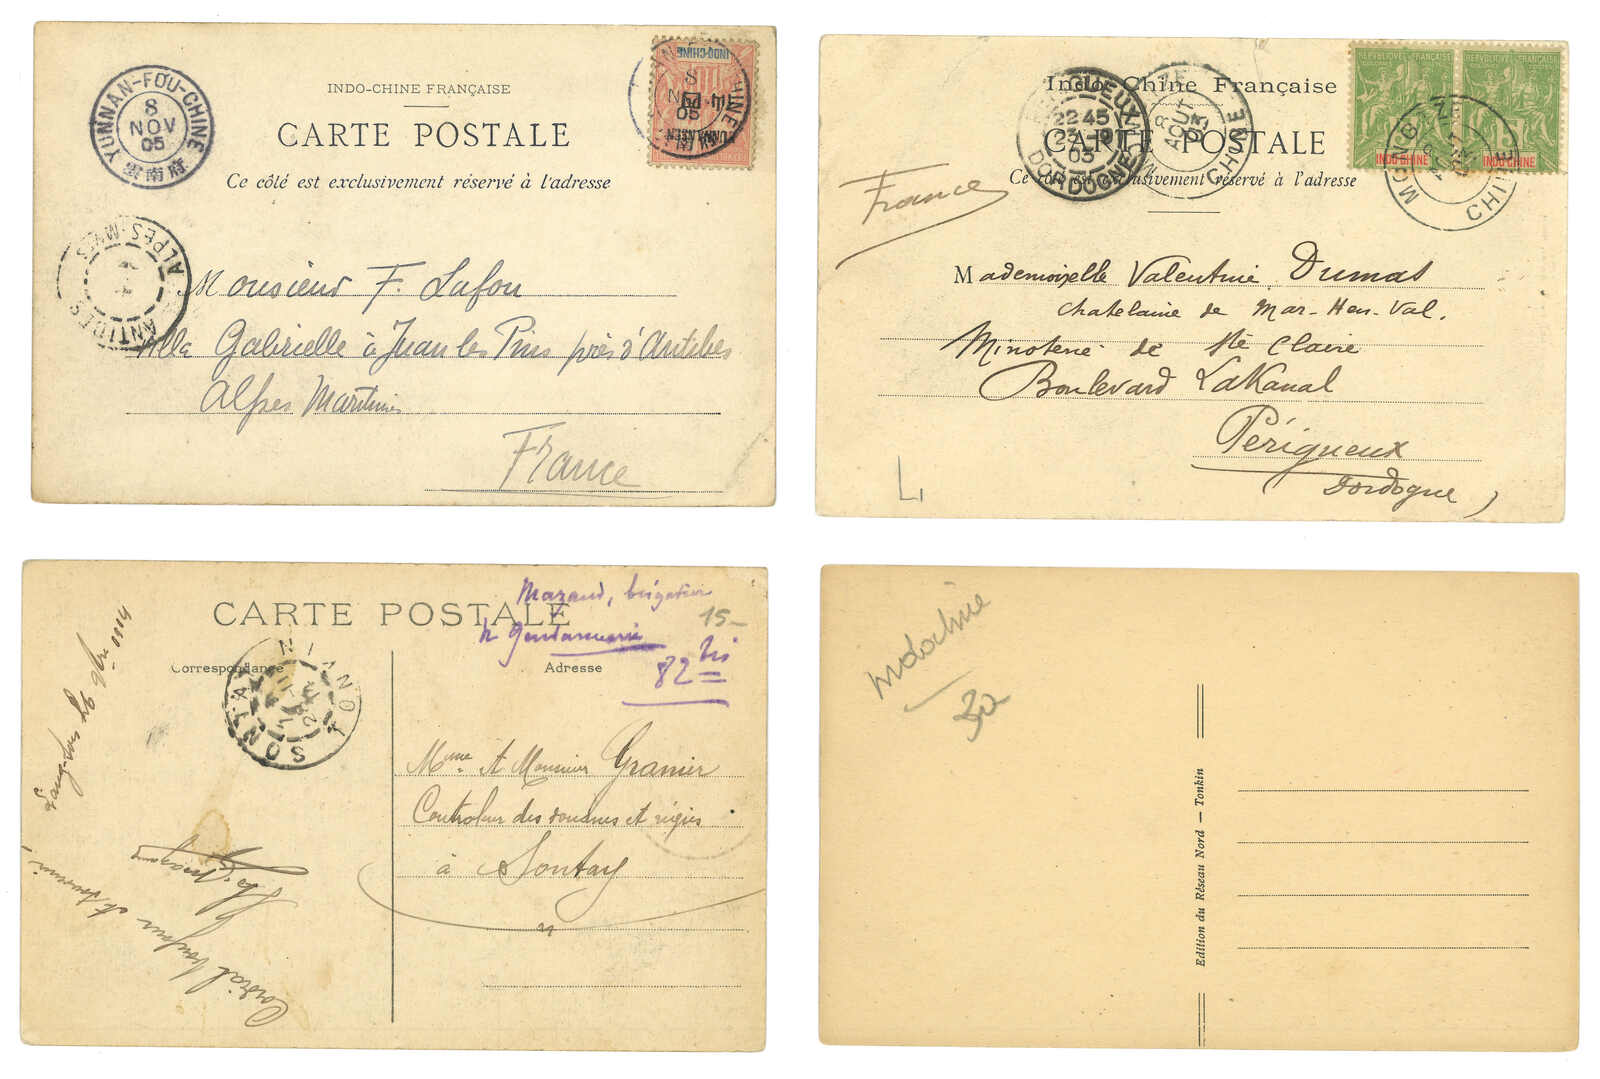 INDO-CHINE FRANÇAISE
CARTE POSTALE
Ce côté est exclusivement réservé à l'adresse
YUNNAN-FOU-CHINE
8
NOV
05
雲南府
INDO-CHINE
8
NOV
05
CHINE
ALPES-MMES
ANTIBES
Monsieur F. Lafon
Villa Gabrielle à Juan les Pins près d'Antibes
Alpes Maritimes
France
Indo-Chine Française
CARTE POSTALE
Ce côté est exclusivement réservé à l'adresse
PERIGUEUX
22 45
23 -9
03
DORDOGNE
8
AOUT
03
CHINE
RÉPUBLIQUE FRANÇAISE
COLONIES
INDO-CHINE
RÉPUBLIQUE FRANÇAISE
COLONIES
INDO-CHINE
MONGTZE
CHINE
France
Mademoiselle Valentine Dumas
Chatelaine de Mar-Hen-Val.
Minoterie de Ste Claire
Boulevard Lakanal
Périgueux
Dordogne
L
CARTE POSTALE
Correspondance
Adresse
Mazaud, brigadier
de Gendarmerie
82 bis
15-
SONTAY
TONKIN
Mme et Monsieur Granier
Contrôleur des douanes et régies
à Sontay
Cordial bonjour et souvenir
Indochine
30
Edition du Réseau Nord — Tonkin